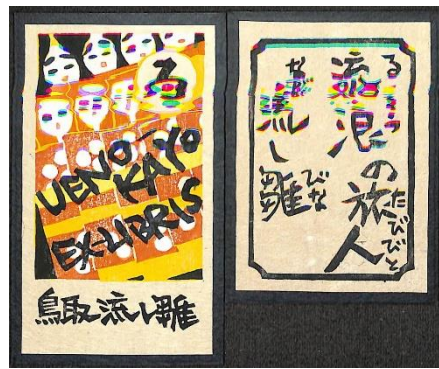 る
UENO-
KAYO
EX-LIBRIS
鳥取流し雛
流浪の旅人
るろう
たびびと
流し雛
ながし
びな